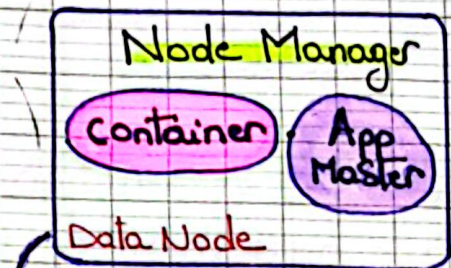 Node Manager
Container
App
Master
Data Node